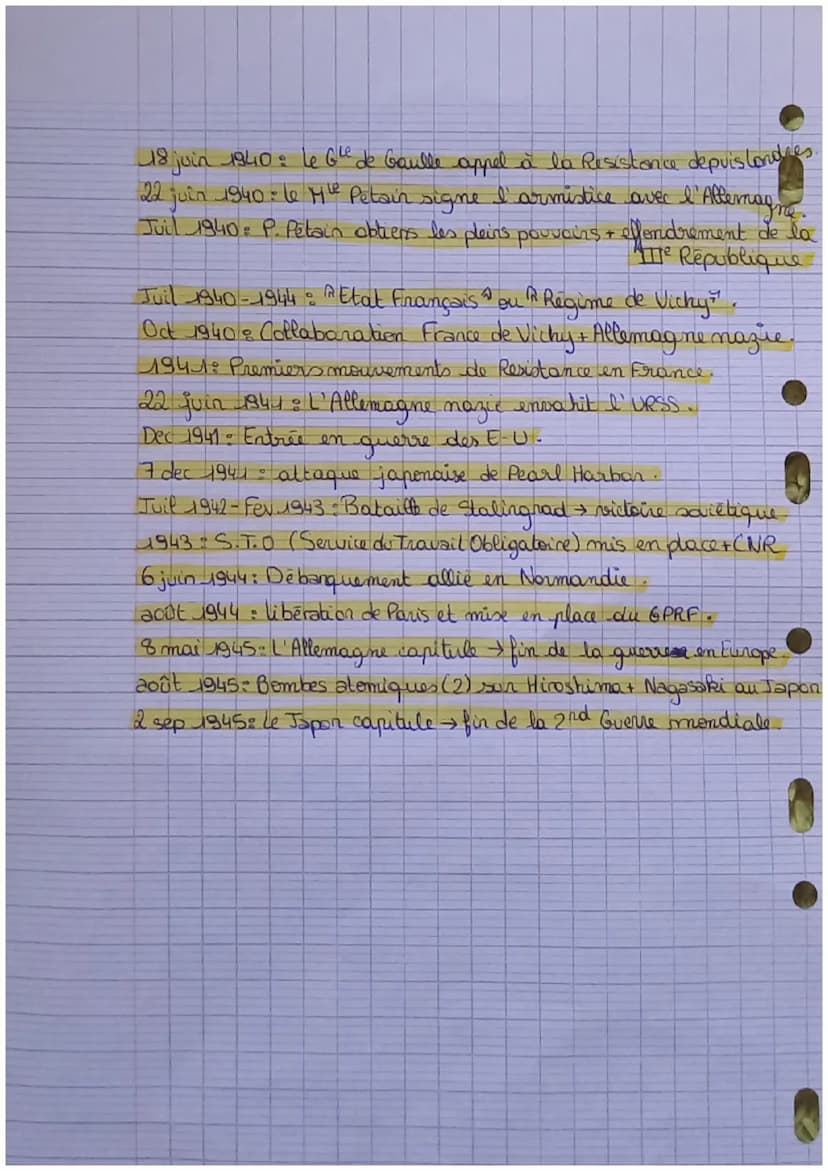 18 juin 1940 : Le Gle de Gaulle appel à la Resistance depuis Londres.
22 juin 1940 : le Mle Petain signe l'armistice avec l'Allemagne.
Juil 1940 : P. Pétain obtiens les pleins pouvoirs + effendrement de la
IIIe République
Juil 1940-1944 : "Etat Français" ou "Régime de Vichy".
Oct 1940 : Collaboration France de Vichy + Allemagne nazie.
1941 : Premiers mouvements de Resistance en France.
22 juin 1941 : L'Allemagne nazie envahit l'URSS.
Dec 1941 : Entrée en guerre des E-U.
7 dec 1941 : attaque japonaise de Pearl Harbor.
Juil 1942-Fev 1943 : Bataille de Stalingrad → victoire soviétique
1943 : S.T.O (Service du Travail Obligatoire) mis en place + CNR
6 juin 1944 : Débarquement allié en Normandie.
août 1944 : libération de Paris et mise en place du GPRF.
8 mai 1945 : L'Allemagne capitule → fin de la guerre en Europe
août 1945 : Bombes atomiques (2) sur Hiroshima + Nagasaki au Japon
2 sep 1945 : Le Japon capitule → fin de la 2nd Guerre mondiale.